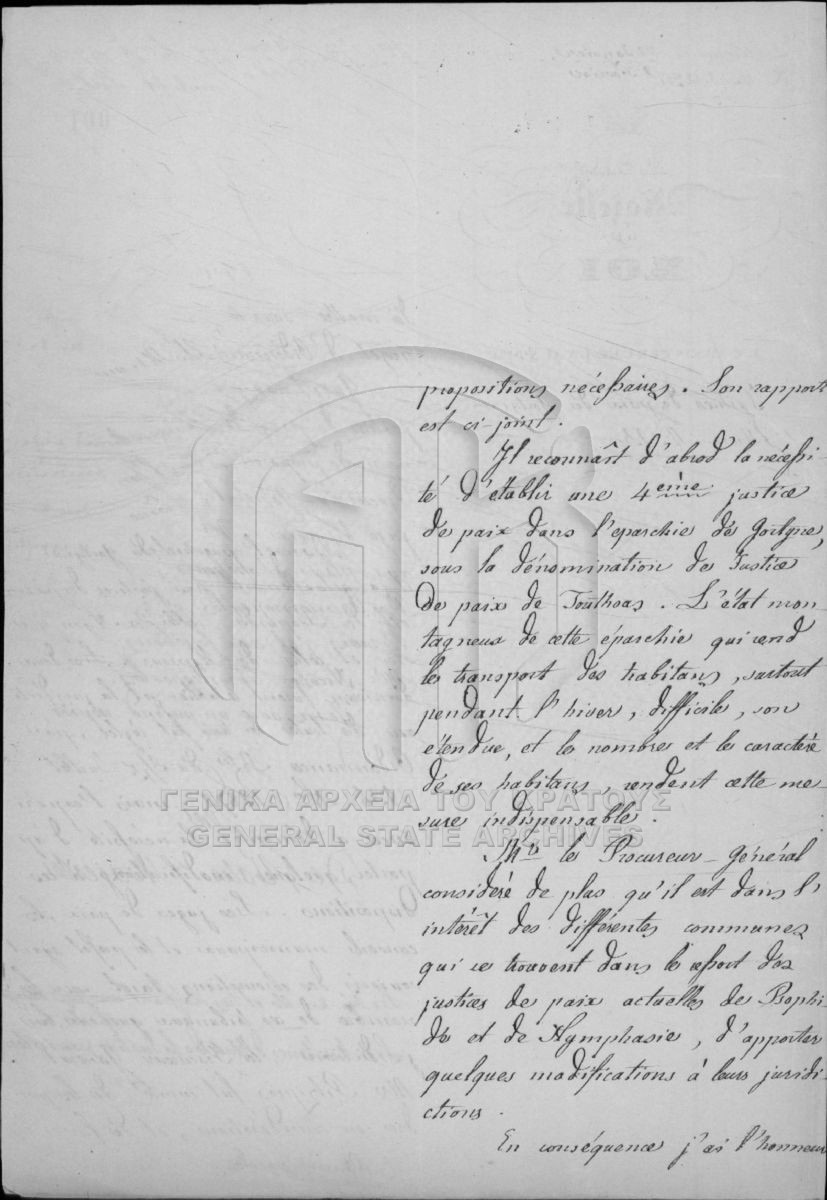 propositions nécessaires. Son rapport
est ci-joint.
Il reconnaît d'abrod la nécessi-
té d'établir une 4eme justice
de paix dans l'eparchie de Gortyne,
sous la dénomination de Justice
de paix de Touthoas. L'état mon-
tagneux de cette éparchie qui rend
les transport des habitans, surtout
pendant l'hiver, difficile, son
étendue, et le nombre et le caractére
de ses habitans, rendent cette me-
sure indispensable.
ΓΕΝΙΚΑ ΑΡΧΕΙΑ ΤΟΥ ΚΡΑΤΟΥΣ
GENERAL STATE ARCHIVES
Mr le Procureur-Général
considére de plus qu'il est dans l'
intérêt des différentes communes
qui se trouvent dans le ressort des
justices de paix actuelles de Psophi-
de et de Nymphasie, d'apporter
quelques modifications à leurs juridi-
ctions.
En conséquence j'ai l'honneur